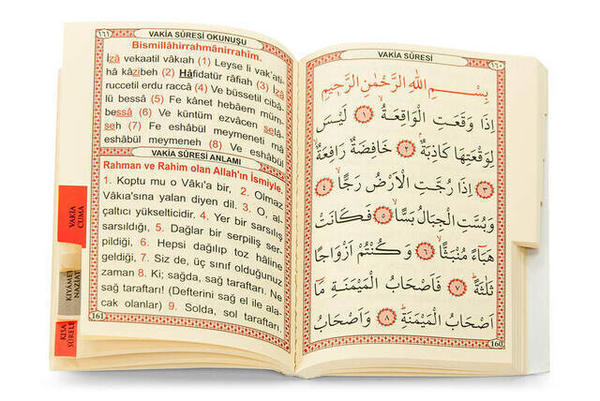 ١٦١
VAKİA SÛRESİ OKUNUŞU
Bismillâhirrahmânirrahim.
İzâ vekaatil vâkıah (1) Leyse li vak'ati-
hâ kâzibeh (2) Hâfidatür râfiah (3) İzâ
ruccetil erdu raccâ (4) Ve büssetil cibâ-
lü bessâ (5) Fe kânet hebâem müm-
bessâ (6) Ve küntüm ezvâcen selâ-
seh (7) Fe eshâbül meymeneti mâ
eshâbül meymeneh (8) Ve eshâbül
VAKİA SÛRESİ ANLAMI
Rahman ve Rahim olan Allah'ın İsmiyle.
1. Koptu mu o Vâkı'a bir, 2. Olmaz
Vâkıa'sına yalan diyen dil. 3. O, al-
çaltıcı yükselticidir. 4. Yer bir sarsılış
sarsıldığı, 5. Dağlar bir serpiliş ser-
pildiği, 6. Hepsi dağılıp toz hâline
geldiği, 7. Siz de, üç sınıf olduğunuz
zaman 8. Ki; sağda, sağ tarafları. Ne
sağ tarafları! (Defterini sağ el ile ala-
cak olanlar) 9. Solda, sol tarafları.
161
VAKİA CUMA
KIYAMET NAZİAT
KISA SÛRELER
VAKİA SÛRESİ
١٦٠
بِسْمِ اللهِ الرَّحْمٰنِ الرَّحِيمِ
اِذَا وَقَعَتِ الْوَاقِعَةُۙ ١ لَيْسَ
لِوَقْعَتِهَا كَاذِبَةٌۢ ٢ خَافِضَةٌ رَافِعَةٌۙ
٣ اِذَا رُجَّتِ الْاَرْضُ رَجًّاۙ ٤
وَبُسَّتِ الْجِبَالُ بَسًّاۙ ٥ فَكَانَتْ
هَبَٓاءً مُنْبَثًّاۙ ٦ وَكُنْتُمْ اَزْوَاجًا
ثَلٰثَةًۜ ٧ فَاَصْحَابُ الْمَيْمَنَةِ مَٓا
اَصْحَابُ الْمَيْمَنَةِۜ ٨ وَاَصْحَابُ
160